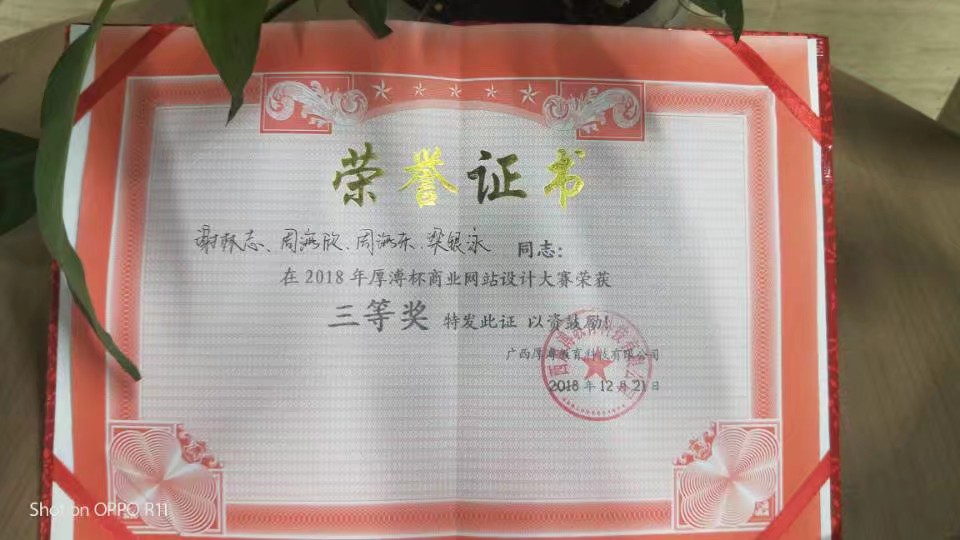 荣誉证书
谢林志、周海欣、周海东、梁银泳 同志:
在2018年厚溥杯商业网站设计大赛荣获
三等奖 特发此证 以资鼓励!
广西厚溥教育科技有限公司
2018年12月21日
Shot on OPPO R11